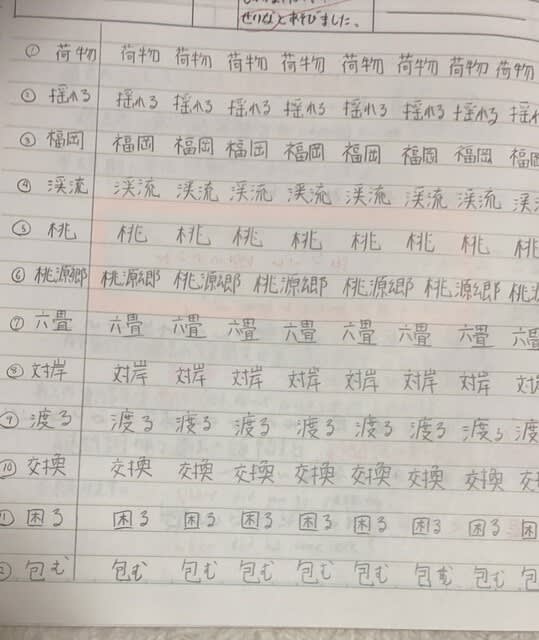 せりなとあそびました。
① 荷物 荷物 荷物 荷物 荷物 荷物 荷物 荷物 荷物
② 揺れる 揺れる 揺れる 揺れる 揺れる 揺れる 揺れる 揺れる 揺れ
③ 福岡 福岡 福岡 福岡 福岡 福岡 福岡 福岡 福岡
④ 渓流 渓流 渓流 渓流 渓流 渓流 渓流 渓流 渓
⑤ 桃 桃 桃 桃 桃 桃 桃 桃 桃
⑥ 桃源郷 桃源郷 桃源郷 桃源郷 桃源郷 桃源郷 桃源郷 桃
⑦ 六畳 六畳 六畳 六畳 六畳 六畳 六畳 六畳 六畳
⑧ 対岸 対岸 対岸 対岸 対岸 対岸 対岸 対岸 対
⑨ 渡る 渡る 渡る 渡る 渡る 渡る 渡る 渡る 渡
⑩ 交換 交換 交換 交換 交換 交換 交換 交換 交
⑪ 困る 困る 困る 困る 困る 困る 困る 困る 困
⑫ 包む 包む 包む 包む 包む 包む 包む 包む 包